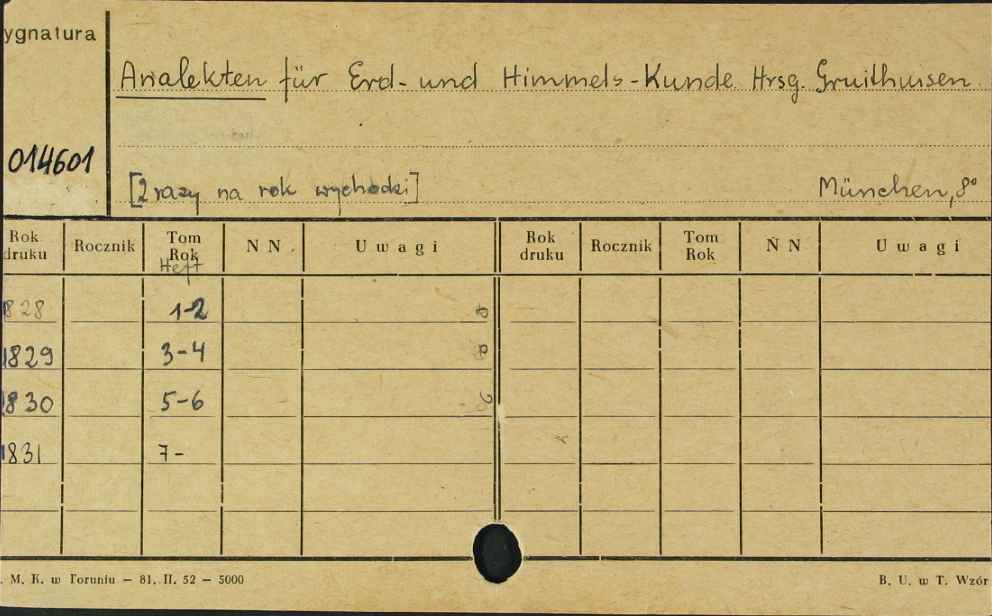 ygnatura
Analekten für Erd- und Himmels-Kunde. Hrsg. Gruithuisen
014601
[2 razy na rok wychodzi]
München, 8°
Rok druku Rocznik Tom Rok Heft N N Uwagi Rok druku Rocznik Tom Rok N N Uwagi
1828 1-2
1829 3-4
1830 5-6
1831 7-
. M. K. w Toruniu — 81. II. 52 — 5000
B. U. w T. Wzór